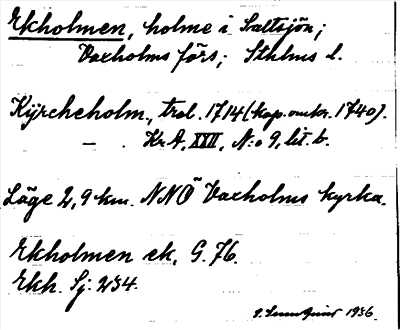 Ekholmen, holme i Saltsjön;
Vaxholms förs; Sthlms l.
Kyrcheholm, trol. 1714 (kop. omkr. 1740).
— Kr A, XXII, N:o 9, lit. b.
Läge 2,9 km. NNÖ Vaxholms kyrka.
Ekholmen ek, G. 76.
Ekh. Sj: 234.
1936.